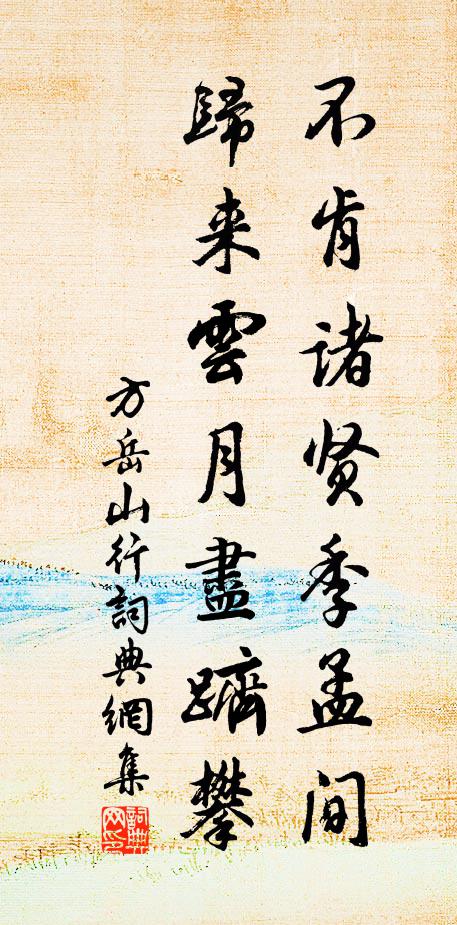 不肯诸贤季孟间
歸来雲月盡躋攀
方岳山行詞典網集
詞典网印